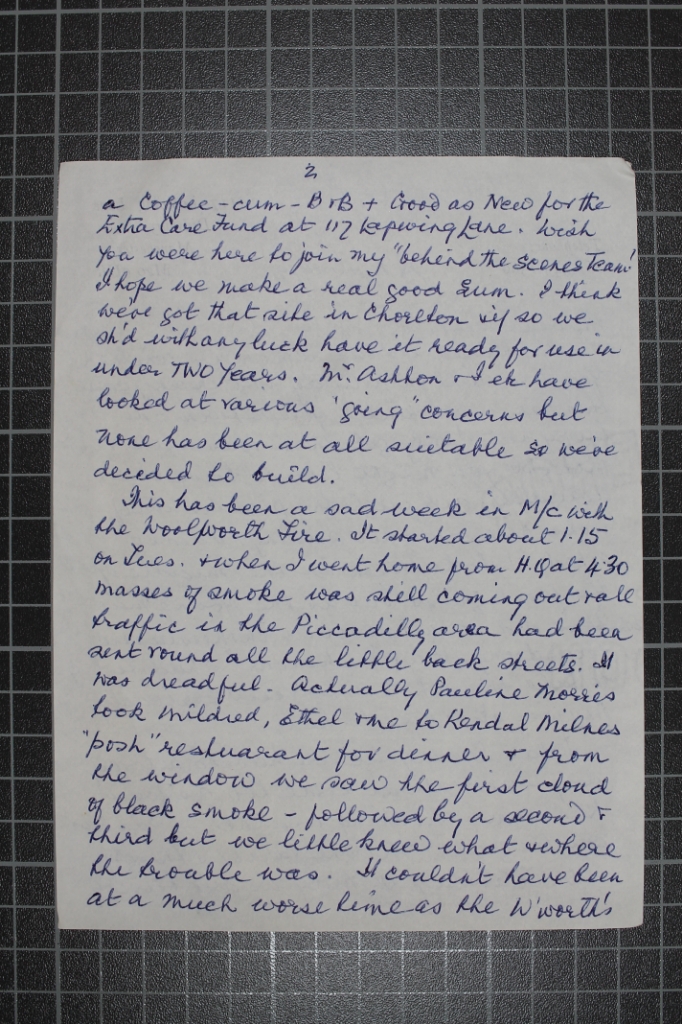 2
a Coffee-cum-B+B + Good as New for the
Extra Care Fund at 117 Lapwing Lane. Wish
you were here to join my "behind the Scenes Team"
I hope we make a real good Sum. I think
we've got that site in Chorlton & if so we
sh'd with any luck have it ready for use in
under TWO Years. Mr. Ashton & I etc have
looked at various 'going" concerns but
none has been at all suitable so we've
decided to build.
This has been a sad week in M/c with
the Woolworth Fire. It started about 1.15
on Tues. & when I went home from H.Q at 4.30
masses of smoke was still coming out & all
traffic in the Piccadilly area had been
sent round all the little back streets. It
was dreadful. Actually Pauline Morris
took Mildred, Ethel & me to Kendal Milnes
"posh" restuarant for dinner & from
the window we saw the first cloud
of black smoke - followed by a second &
third but we little knew what & where
the trouble was. It couldn't have been
at a much worse time as the W'worth's